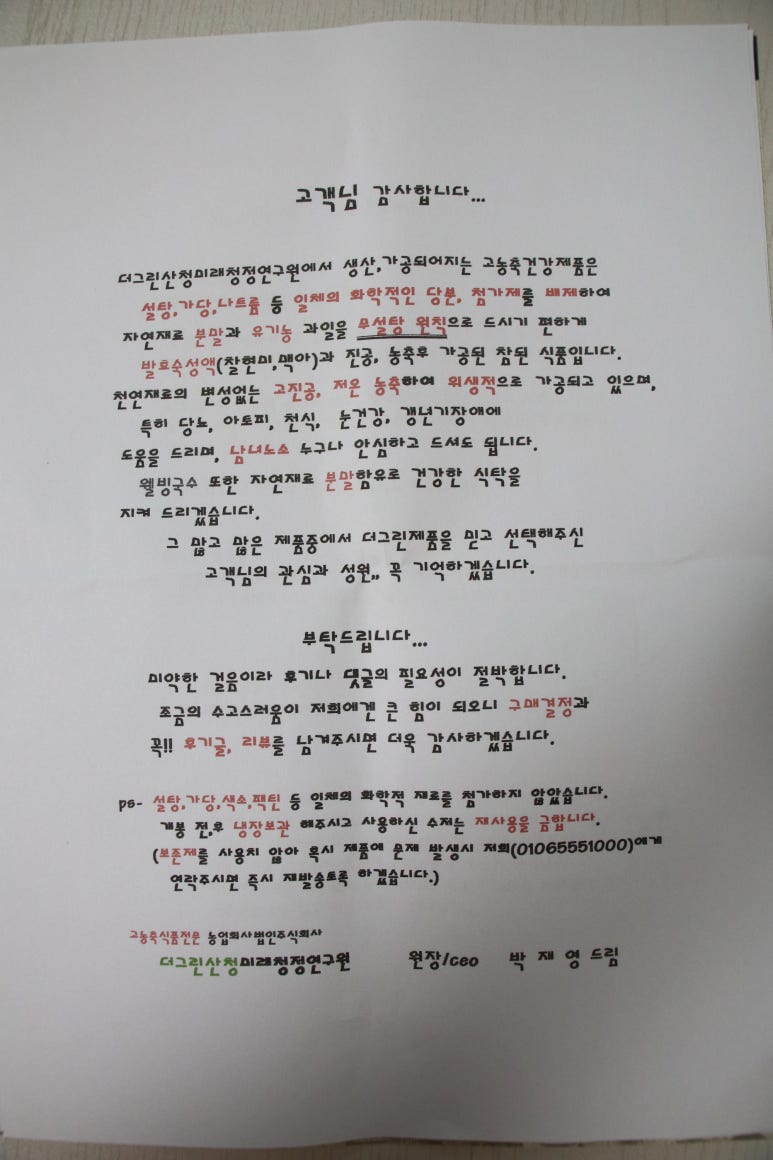 고객님 감사합니다...
더그린산청미래청정연구원에서 생산,가공되어지는 고농축건강제품은
설탕,가당,나트륨 등 일체의 화학적인 당분, 첨가제를 배제하여
자연재료 분말과 유기농 과일을 무설탕 원칙으로 드시기 편하게
발효숙성액(찰현미,맥아)과 진공, 농축후 가공된 참된 식품입니다.
천연재료의 변성없는 고진공, 저온 농축하여 위생적으로 가공되고 있으며,
특히 당뇨, 아토피, 천식, 눈건강, 갱년기장애에
도움을 드리며, 남녀노소 누구나 안심하고 드셔도 됩니다.
웰빙국수 또한 자연재료 분말함유로 건강한 식탁을
지켜 드리겠습니다.
그 많고 많은 제품중에서 더그린제품을 믿고 선택해주신
고객님의 관심과 성원,, 꼭 기억하겠습니다.
부탁드립니다...
미약한 걸음이라 후기나 댓글의 필요성이 절박합니다.
조금의 수고스러움이 저희에겐 큰 힘이 되오니 구매결정과
꼭!! 후기글, 리뷰를 남겨주시면 더욱 감사하겠습니다.
ps- 설탕,가당,색소,팩틴 등 일체의 화학적 재료를 첨가하지 않았습니다.
개봉 전,후 냉장보관 해주시고 사용하신 수저는 재사용을 금합니다.
(보존제를 사용치 않아 혹시 제품에 문제 발생시 저희(01065551000)에게
연락주시면 즉시 재발송토록 하겠습니다.)
고농축식품전문 농업회사법인주식회사
더그린산청미래청정연구원 원장/ceo 박 재 영 드림